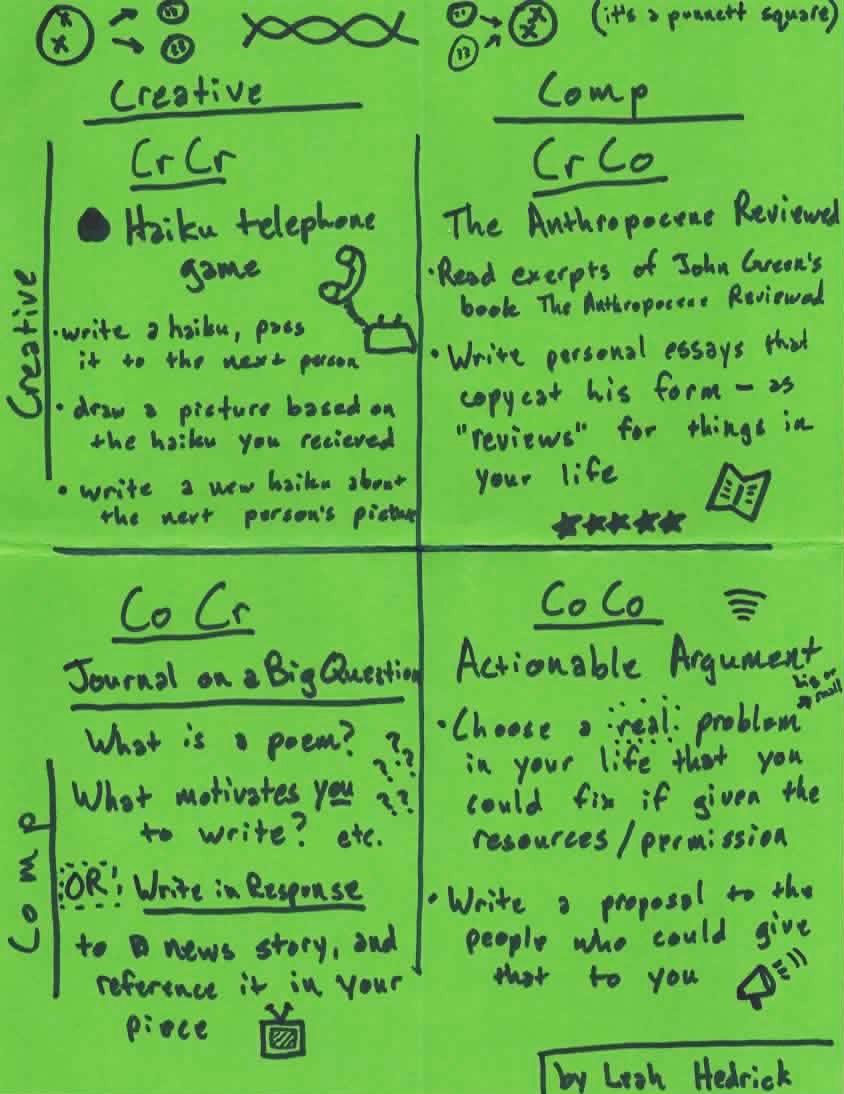 (it's a punnett square)
Creative
Comp
Creative
Cr Cr
Haiku telephone
game
• write a haiku, pass
it to the next person
• draw a picture based on
the haiku you recieved
• write a new haiku about
the next person's picture
Cr Co
The Anthropocene Reviewed
• Read exerpts of John Green's
book The Anthropocene Reviewed
• Write personal essays that
copycat his form – as
"reviews" for things in
your life
Comp
Co Cr
Journal on a Big Question
What is a poem?
??
What motivates you
??
to write? etc.
??
OR: Write in Response
to a news story, and
reference it in your
piece
Co Co
Actionable Argument
big or
small
• Choose a real problem
in your life that you
could fix if given the
resources/permission
• Write a proposal to the
people who could give
that to you
by Leah Hedrick